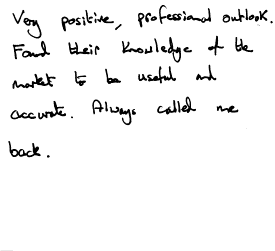 Very positive, professional outlook.
Found their knowledge of the
market to be useful and
accurate. Always called me
back.